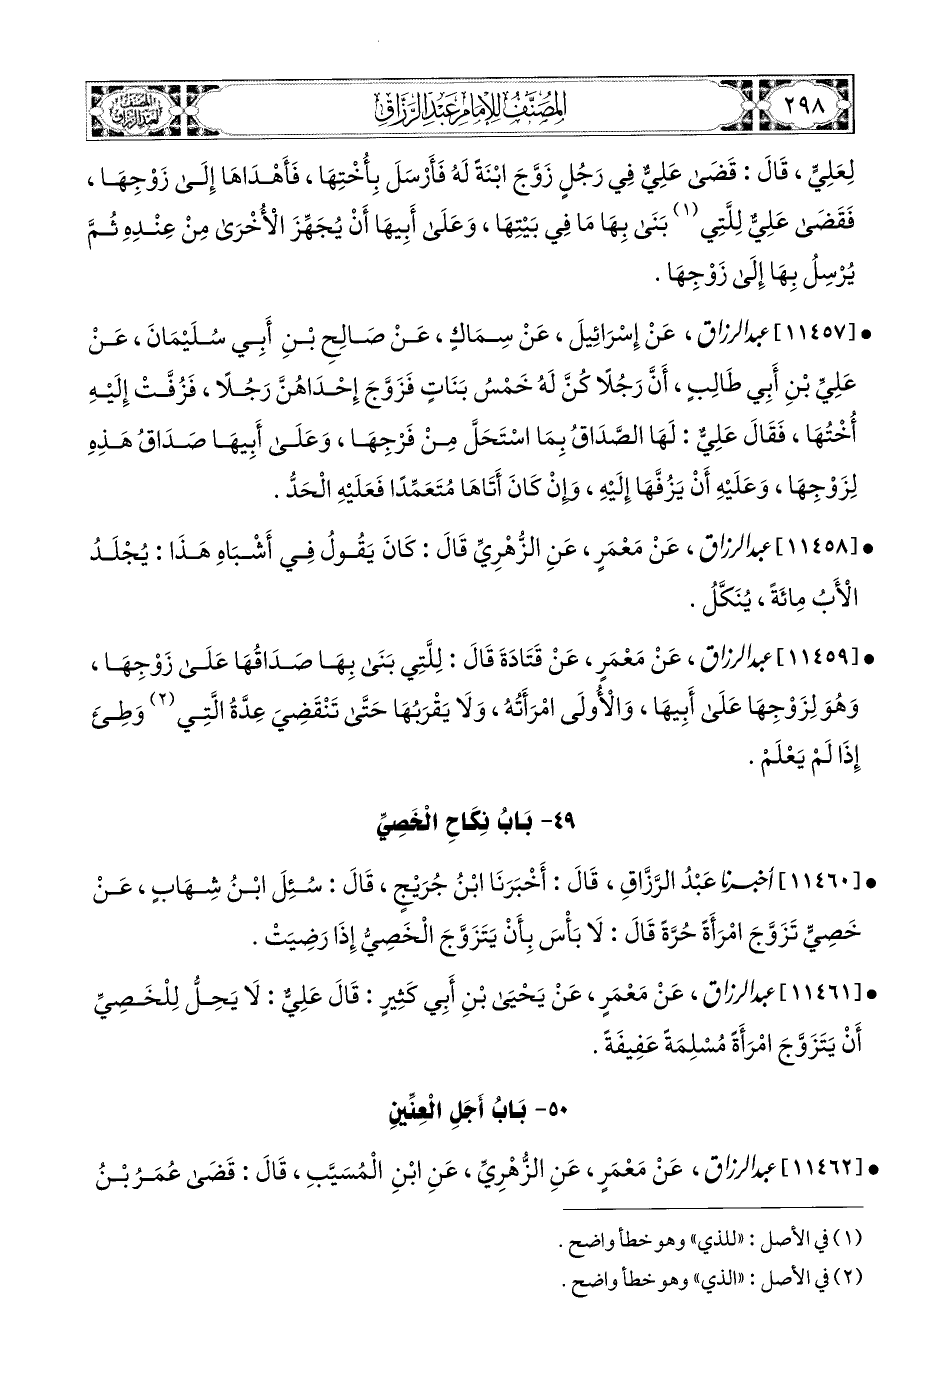 ٢٩٨
المصنف للإمام عبد الرزاق
المصنف لعبد الرزاق
لِعَلِيٍّ ، قَالَ : قَضَىٰ عَلِيٌّ فِي رَجُلٍ زَوَّجَ ابْنَةً لَهُ فَأَرْسَلَ بِأُخْتِهَا ، فَأَهْدَاهَا إِلَىٰ زَوْجِهَا ،
فَقَضَىٰ عَلِيٌّ لِلَّتِي (١) بَنَىٰ بِهَا مَا فِي بَيْتِهَا ، وَعَلَىٰ أَبِيهَا أَنْ يُجَهِّزَ الْأُخْرَىٰ مِنْ عِنْدِهِ ثُمَّ
يُرْسِلُ بِهَا إِلَىٰ زَوْجِهَا .
• [١١٤٥٧] عبد الرزاق ، عَنْ إِسْرَائِيلَ ، عَنْ سِمَاكٍ ، عَنْ صَالِحِ بْنِ أَبِي سُلَيْمَانَ ، عَنْ
عَلِيِّ بْنِ أَبِي طَالِبٍ ، أَنَّ رَجُلًا كُنَّ لَهُ خَمْسُ بَنَاتٍ فَزَوَّجَ إِحْدَاهُنَّ رَجُلًا ، فَزُفَّتْ إِلَيْهِ
أُخْتُهَا ، فَقَالَ عَلِيٌّ : لَهَا الصَّدَاقُ بِمَا اسْتَحَلَّ مِنْ فَرْجِهَا ، وَعَلَىٰ أَبِيهَا صَدَاقُ هَذِهِ
لِزَوْجِهَا ، وَعَلَيْهِ أَنْ يَزُفَّهَا إِلَيْهِ ، وَإِنْ كَانَ أَتَاهَا مُتَعَمِّدًا فَعَلَيْهِ الْحَدُّ .
• [١١٤٥٨] عبد الرزاق ، عَنْ مَعْمَرٍ ، عَنِ الزُّهْرِيِّ قَالَ : كَانَ يَقُولُ فِي أَشْبَاهِ هَذَا : يُجْلَدُ
الْأَبُ مِائَةً ، يُنَكَّلُ .
• [١١٤٥٩] عبد الرزاق ، عَنْ مَعْمَرٍ ، عَنْ قَتَادَةَ قَالَ : لِلَّتِي بَنَىٰ بِهَا صَدَاقُهَا عَلَىٰ زَوْجِهَا ،
وَهُوَ لِزَوْجِهَا عَلَىٰ أَبِيهَا ، وَالْأُولَى امْرَأَتُهُ ، وَلَا يَقْرَبُهَا حَتَّىٰ تَنْقَضِيَ عِدَّةُ الَّتِي (٢) وَطِئَ
إِذَا لَمْ يَعْلَمْ .
٤٩- بَابُ نِكَاحِ الْخَصِيِّ
• [١١٤٦٠] أخبرنا عَبْدُ الرَّزَّاقِ ، قَالَ : أَخْبَرَنَا ابْنُ جُرَيْجٍ ، قَالَ : سُئِلَ ابْنُ شِهَابٍ ، عَنْ
خَصِيٍّ تَزَوَّجَ امْرَأَةً حُرَّةً قَالَ : لَا بَأْسَ بِأَنْ يَتَزَوَّجَ الْخَصِيُّ إِذَا رَضِيَتْ .
• [١١٤٦١] عبد الرزاق ، عَنْ مَعْمَرٍ ، عَنْ يَحْيَىٰ بْنِ أَبِي كَثِيرٍ : قَالَ عَلِيٌّ : لَا يَحِلُّ لِلْخَصِيِّ
أَنْ يَتَزَوَّجَ امْرَأَةً مُسْلِمَةً عَفِيفَةً .
٥٠- بَابُ أَجَلِ الْعِنِّينِ
• [١١٤٦٢] عبد الرزاق ، عَنْ مَعْمَرٍ ، عَنِ الزُّهْرِيِّ ، عَنِ ابْنِ الْمُسَيَّبِ ، قَالَ : قَضَىٰ عُمَرُ بْنُ
(١) في الأصل : «للذي» وهو خطأ واضح .
(٢) في الأصل : «الذي» وهو خطأ واضح .